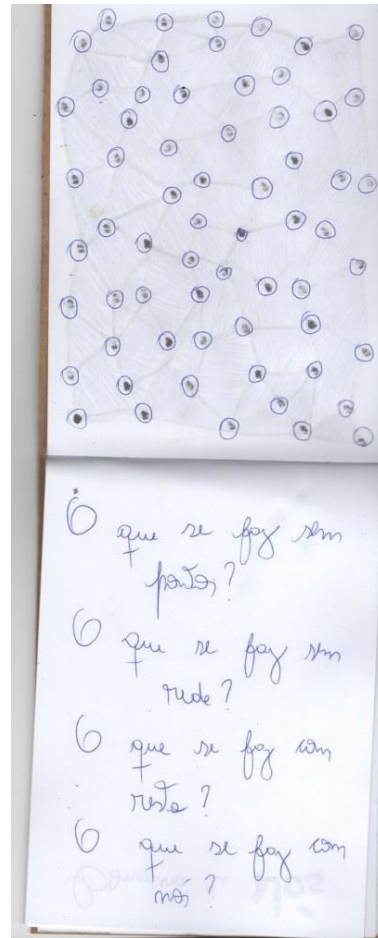 O que se faz sem
pontos?
O que se faz sem
rede?
O que se faz com
resto?
O que se faz com
nós?